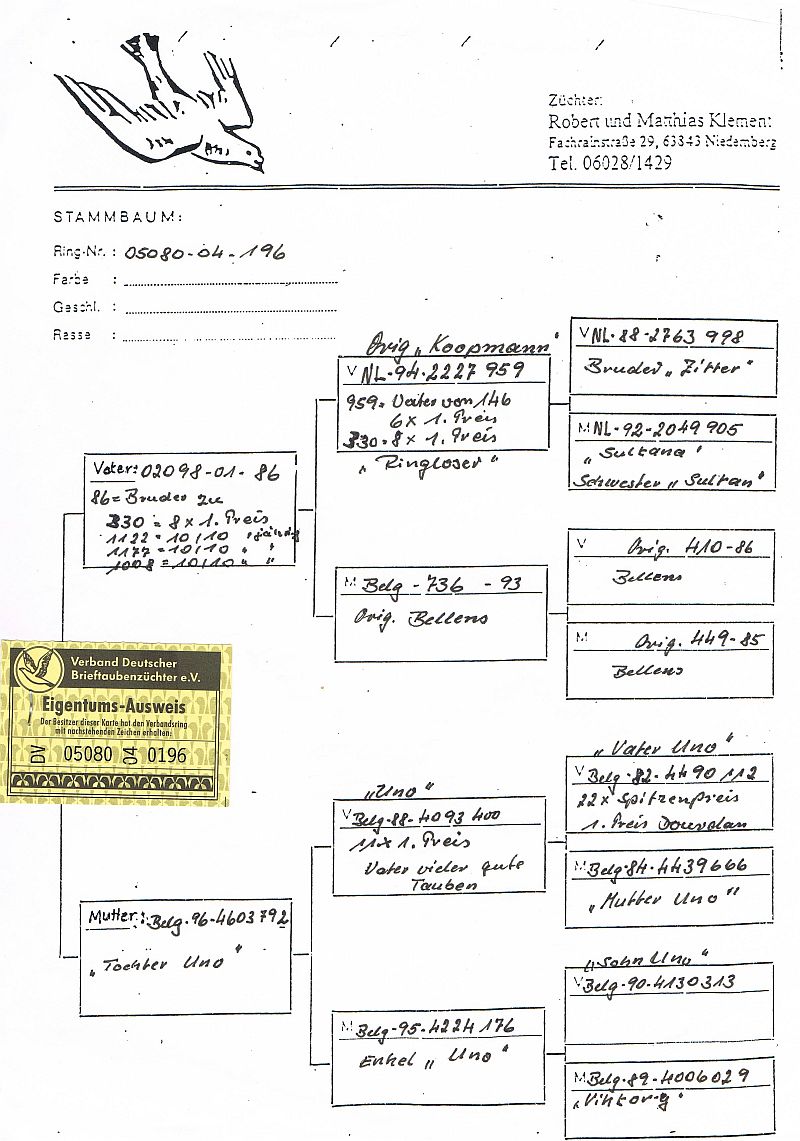 Züchter:
Robert und Matthias Klement
Fachrainstraße 29, 63843 Niedernberg
Tel. 06028/1429
STAMMBAUM:
Ring-Nr. : 05080-04-196
Farbe :
Geschl. :
Rasse :
Orig „Koopmann"
V NL-94-2227 959
959= Vater von 146
6 x 1. Preis
330-8 x 1. Preis
„Ringloser"
V NL-88-2763 998
Bruder „Zitter"
M NL-92-2049 905
„Sultana"
Schwester „Sultan"
Vater: 02098-01-86
86= Bruder zu
330 = 8 x 1. Preis
1122 = 10/10
1177 = 10/10 " "
1008 = 10/10 " "
M Belg - 736 - 93
Orig. Bellens
V Orig. 410-86
Bellens
M Orig. 449-85
Bellens
Verband Deutscher
Brieftaubenzüchter e.V.
Eigentums-Ausweis
Der Besitzer dieser Karte hat den Verbandsring
mit nachstehenden Zeichen erhalten:
DV 05080 04 0196
„Uno"
V Belg-88-4093 400
11 x 1. Preis
Vater vieler gute
Tauben
„Vater Uno"
V Belg-82-4490 112
22 x Spitzenpreis
1. Preis Dourdan
M Belg-84-4439666
„Mutter Uno"
Mutter: Belg-96-4603792
„Tochter Uno"
M Belg-95-4224176
Enkel „Uno"
„Sohn Uno"
V Belg-90-4130313
M Belg-89-4006029
„Viktor-g"